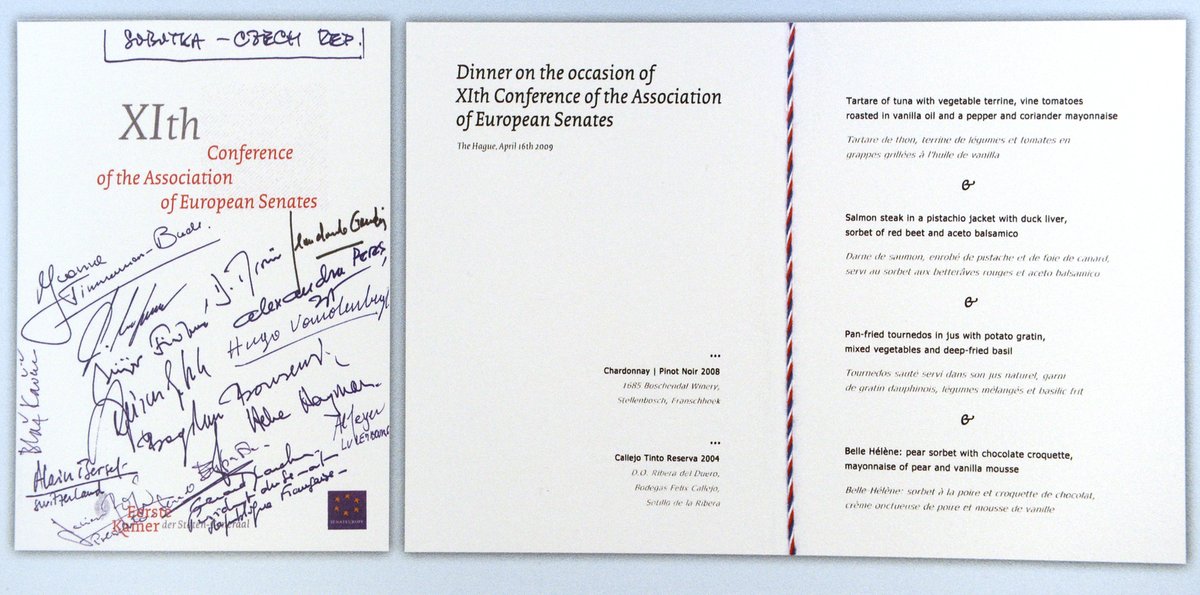 SOBOTKA - CZECH REP.
XIth
Conference
of the Association
of European Senates
Yvonne
Timmerman-Buck
Alexandra PERS
Hugo Vandenberghe
Blaž Kavčič
Helen Hayman
LUXEMBOURG
Alain Berset
Switzerland
Gérard Larcher
Président du Sénat
République Française
Eerste
Kamer der Staten-Generaal
Dinner on the occasion of
XIth Conference of the Association
of European Senates
The Hague, April 16th 2009
•••
Chardonnay | Pinot Noir 2008
1685 Boschendal Winery,
Stellenbosch, Franschhoek
•••
Callejo Tinto Reserva 2004
D.O. Ribera del Duero,
Bodegas Felix Callejo,
Sotillo de la Ribera
Tartare of tuna with vegetable terrine, vine tomatoes
roasted in vanilla oil and a pepper and coriander mayonnaise
Tartare de thon, terrine de légumes et tomates en
grappes grillées à l'huile de vanilla
&
Salmon steak in a pistachio jacket with duck liver,
sorbet of red beet and aceto balsamico
Darne de saumon, enrobé de pistache et de foie de canard,
servi au sorbet aux betterâves rouges et aceto balsamico
&
Pan-fried tournedos in jus with potato gratin,
mixed vegetables and deep-fried basil
Tournedos sauté servi dans son jus naturel, garni
de gratin dauphinois, légumes mélangés et basilic frit
&
Belle Hélène: pear sorbet with chocolate croquette,
mayonnaise of pear and vanilla mousse
Belle-Hélène: sorbet à la poire et croquette de chocolat,
crème onctueuse de poire et mousse de vanille